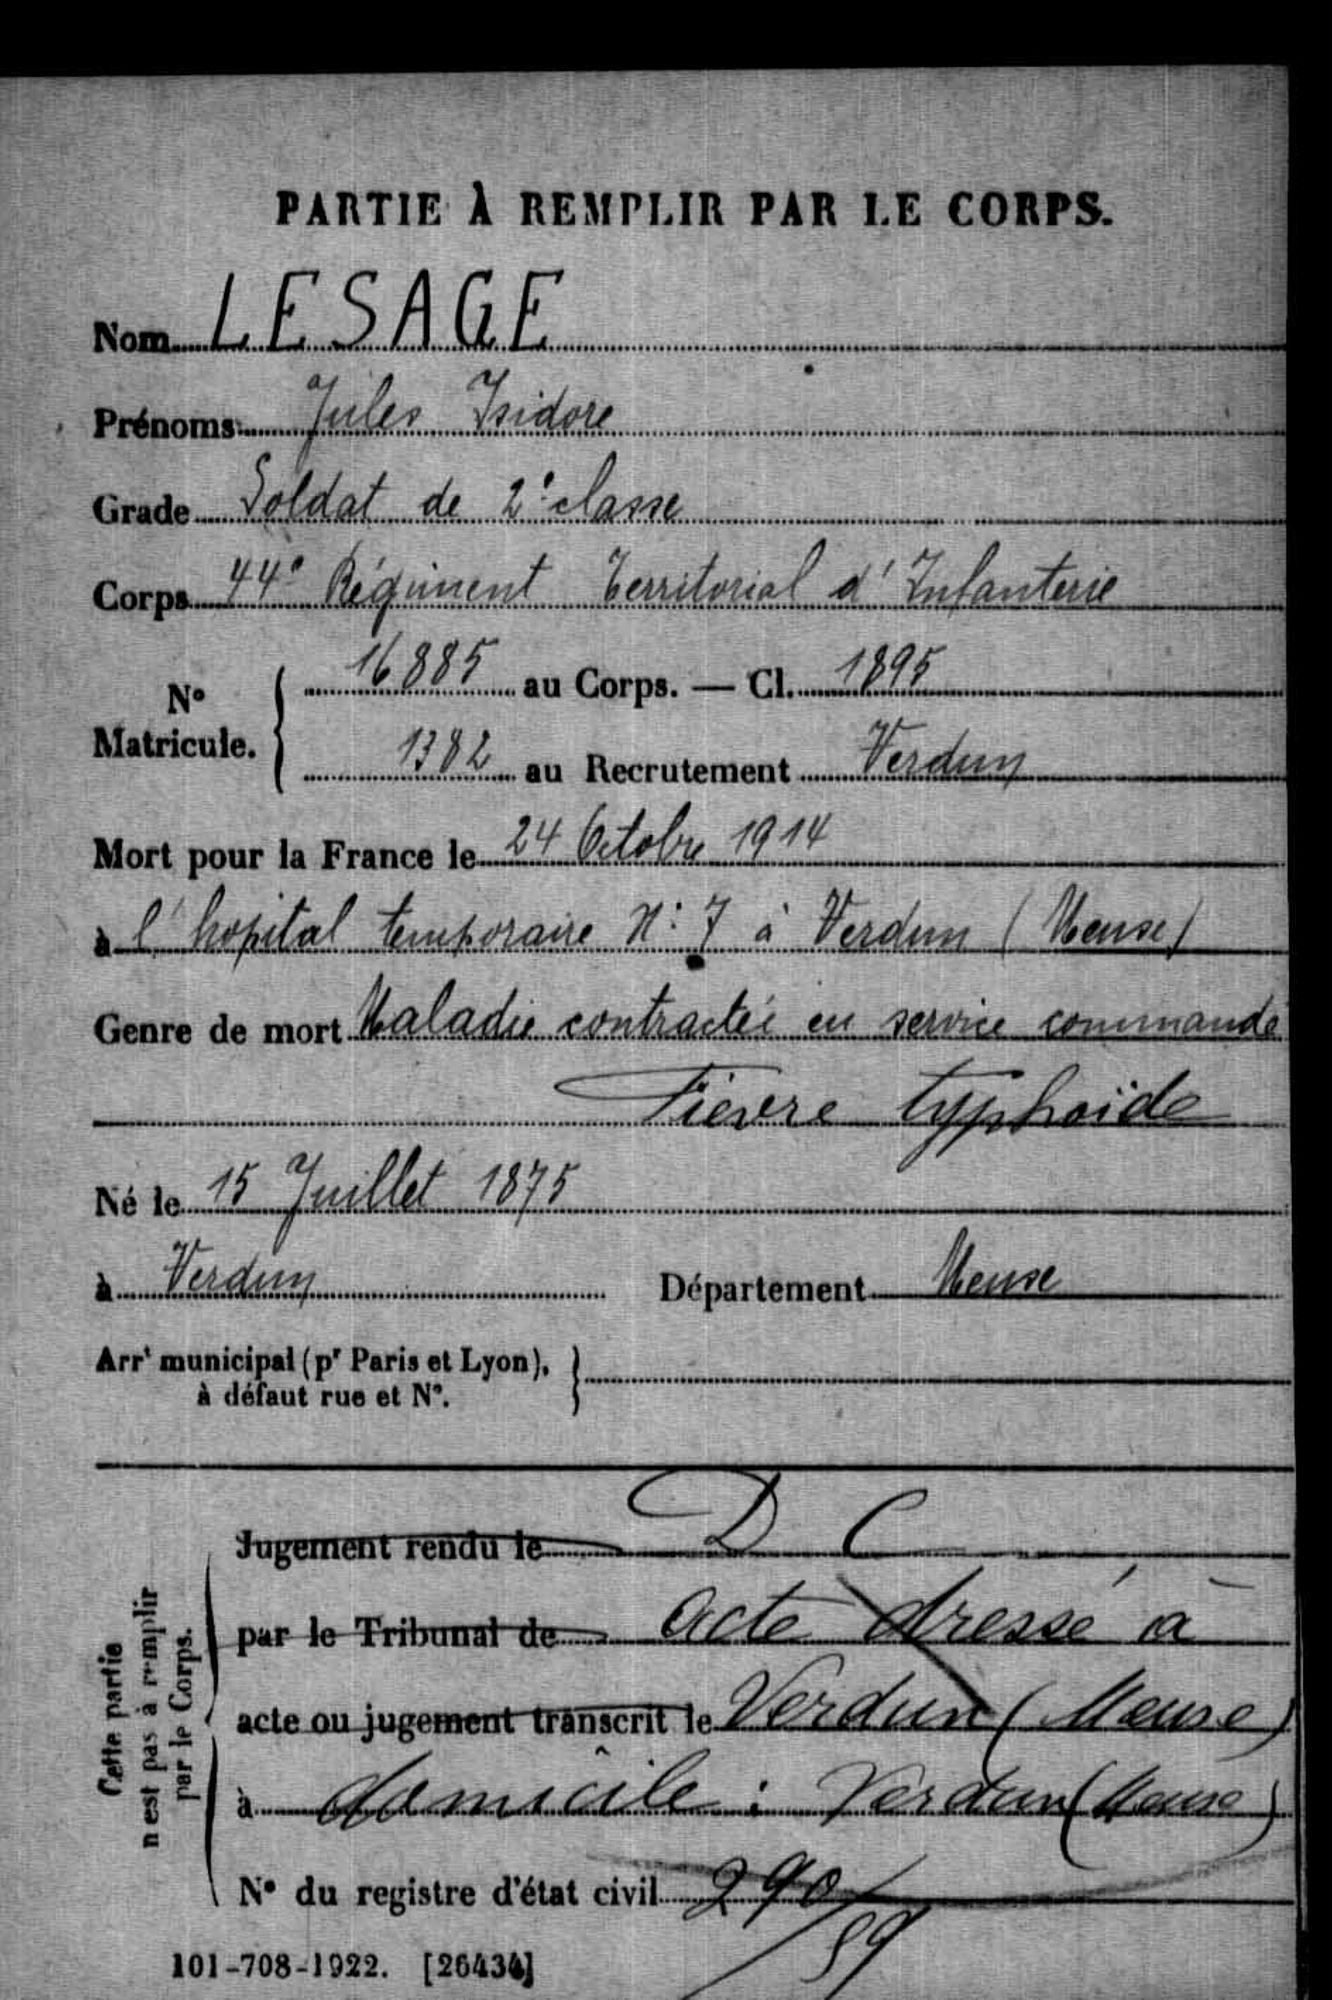 PARTIE À REMPLIR PAR LE CORPS.
Nom LESAGE
Prénoms Jules Isidore
Grade Soldat de 2e classe
Corps 44e Régiment Territorial d'Infanterie
N° Matricule. { 16885 au Corps. — Cl. 1895
1382 au Recrutement Verdun
Mort pour la France le 24 Octobre 1914
à l'hopital temporaire N: 7 à Verdun (Meuse)
Genre de mort Maladie contractée en service commandé
Fièvre typhoïde
Né le 15 Juillet 1875
à Verdun Département Meuse
Arrt municipal (pr Paris et Lyon), }
à défaut rue et N°.
Cette partie
n'est pas à remplir
par le Corps.
Jugement rendu le D C
par le Tribunal de acte dressé à
acte ou jugement transcrit le Verdun (Meuse)
à domicile : Verdun (Meuse)
N° du registre d'état civil 290/
59
101-708-1922. [26434]